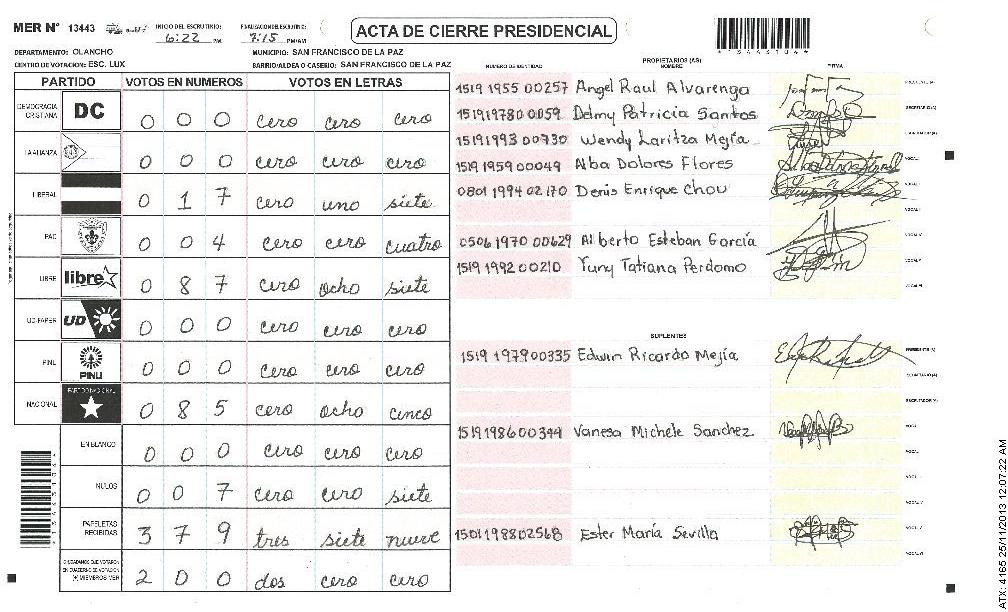 MER N° 13443
INICIO DEL ESCRUTINIO: 6:22 PM
FINALIZACION DEL ESCRUTINIO: 7:15 PM/AM
ACTA DE CIERRE PRESIDENCIAL
DEPARTAMENTO: OLANCHO
MUNICIPIO: SAN FRANCISCO DE LA PAZ
CENTRO DE VOTACION: ESC. LUX
BARRIO/ALDEA O CASERIO: SAN FRANCISCO DE LA PAZ
PARTIDO VOTOS EN NUMEROS VOTOS EN LETRAS
DEMOCRACIA CRISTIANA DC 0 0 0 cero cero cero
LA ALIANZA 0 0 0 cero cero cero
LIBERAL 0 1 7 cero uno siete
PAC 0 0 4 cero cero cuatro
LIBRE libre 0 8 7 cero ocho siete
UD-FAPER UD 0 0 0 cero cero cero
PINU PINU 0 0 0 cero cero cero
NACIONAL PARTIDO NACIONAL 0 8 5 cero ocho cinco
EN BLANCO 0 0 0 cero cero cero
NULOS 0 0 7 cero cero siete
PAPELETAS RECIBIDAS 3 7 9 tres siete nueve
CIUDADANOS QUE VOTARON EN CUADERNO DE VOTACION (+) MIEMBROS MER 2 0 0 dos cero cero
PROPIETARIOS (AS)
NUMERO DE IDENTIDAD NOMBRE FIRMA
1519 1955 00257 Angel Raul Alvarenga PRESIDENTE (A)
1519 1978 00059 Delmy Patricia Santos SECRETARIO (A)
1519 1993 00730 Wendy Laritza Mejía ESCRUTADOR (A)
1519 1959 00049 Alba Dolores Flores VOCAL I
0801 1994 02170 Denis Enrique Chou VOCAL II
VOCAL III
0506 1970 00629 Alberto Esteban García VOCAL IV
1519 1992 00210 Yuny Tatiana Perdomo VOCAL V
VOCAL VI
SUPLENTES
1519 1979 00335 Edwin Ricardo Mejía PRESIDENTE (A)
SECRETARIO (A)
ESCRUTADOR (A)
1519 1986 00344 Vanesa Michele Sanchez VOCAL I
VOCAL II
VOCAL III
VOCAL IV
1501 1988 02568 Ester María Sevilla VOCAL V
VOCAL VI
ATX: 4165 25/11/2013 12:07:22 AM